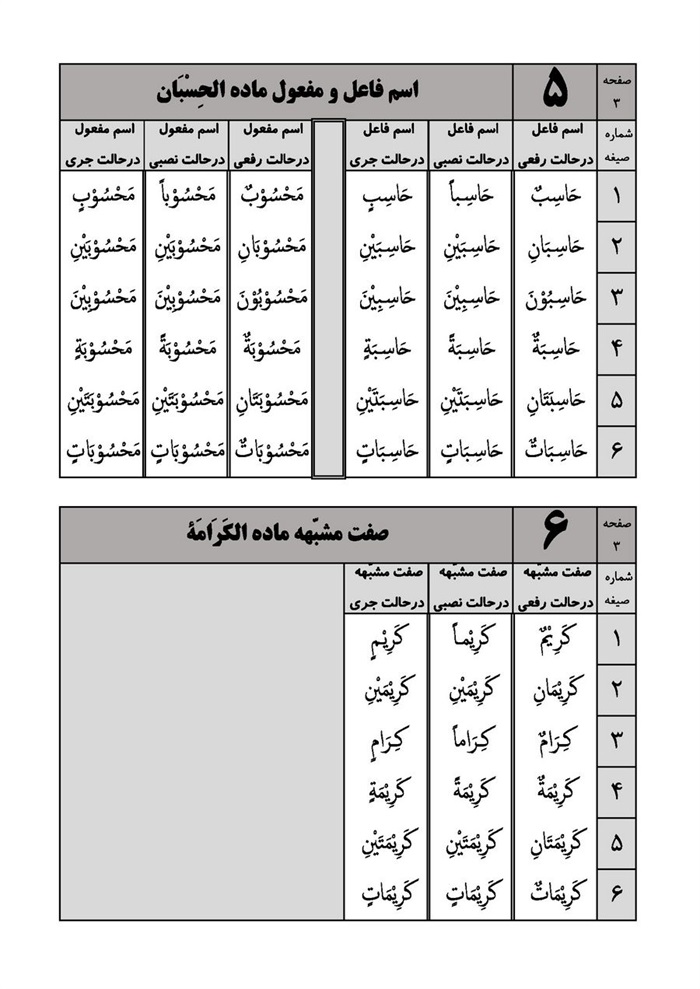 صفحه ۳ ۵ اسم فاعل و مفعول ماده الحِسْبَان
شماره صیغه اسم فاعل درحالت رفعی اسم فاعل درحالت نصبی اسم فاعل درحالت جری اسم مفعول درحالت رفعی اسم مفعول درحالت نصبی اسم مفعول درحالت جری
۱ حَاسِبٌ حَاسِباً حَاسِبٍ مَحْسُوْبٌ مَحْسُوْباً مَحْسُوْبٍ
۲ حَاسِبَانِ حَاسِبَيْنِ حَاسِبَيْنِ مَحْسُوْبَانِ مَحْسُوْبَيْنِ مَحْسُوْبَيْنِ
۳ حَاسِبُوْنَ حَاسِبِيْنَ حَاسِبِيْنَ مَحْسُوْبُوْنَ مَحْسُوْبِيْنَ مَحْسُوْبِيْنَ
۴ حَاسِبَةٌ حَاسِبَةً حَاسِبَةٍ مَحْسُوْبَةٌ مَحْسُوْبَةً مَحْسُوْبَةٍ
۵ حَاسِبَتَانِ حَاسِبَتَيْنِ حَاسِبَتَيْنِ مَحْسُوْبَتَانِ مَحْسُوْبَتَيْنِ مَحْسُوْبَتَيْنِ
۶ حَاسِبَاتٌ حَاسِبَاتٍ حَاسِبَاتٍ مَحْسُوْبَاتٌ مَحْسُوْبَاتٍ مَحْسُوْبَاتٍ
صفحه ۳ ۶ صفت مشبّهه ماده الکَرَامَة
شماره صیغه صفت مشبّهه درحالت رفعی صفت مشبّهه درحالت نصبی صفت مشبّهه درحالت جری
۱ كَرِيْمٌ كَرِيْماً كَرِيْمٍ
۲ كَرِيْمَانِ كَرِيْمَيْنِ كَرِيْمَيْنِ
۳ كِرَامٌ كِرَاماً كِرَامٍ
۴ كَرِيْمَةٌ كَرِيْمَةً كَرِيْمَةٍ
۵ كَرِيْمَتَانِ كَرِيْمَتَيْنِ كَرِيْمَتَيْنِ
۶ كَرِيْمَاتٌ كَرِيْمَاتٍ كَرِيْمَاتٍ